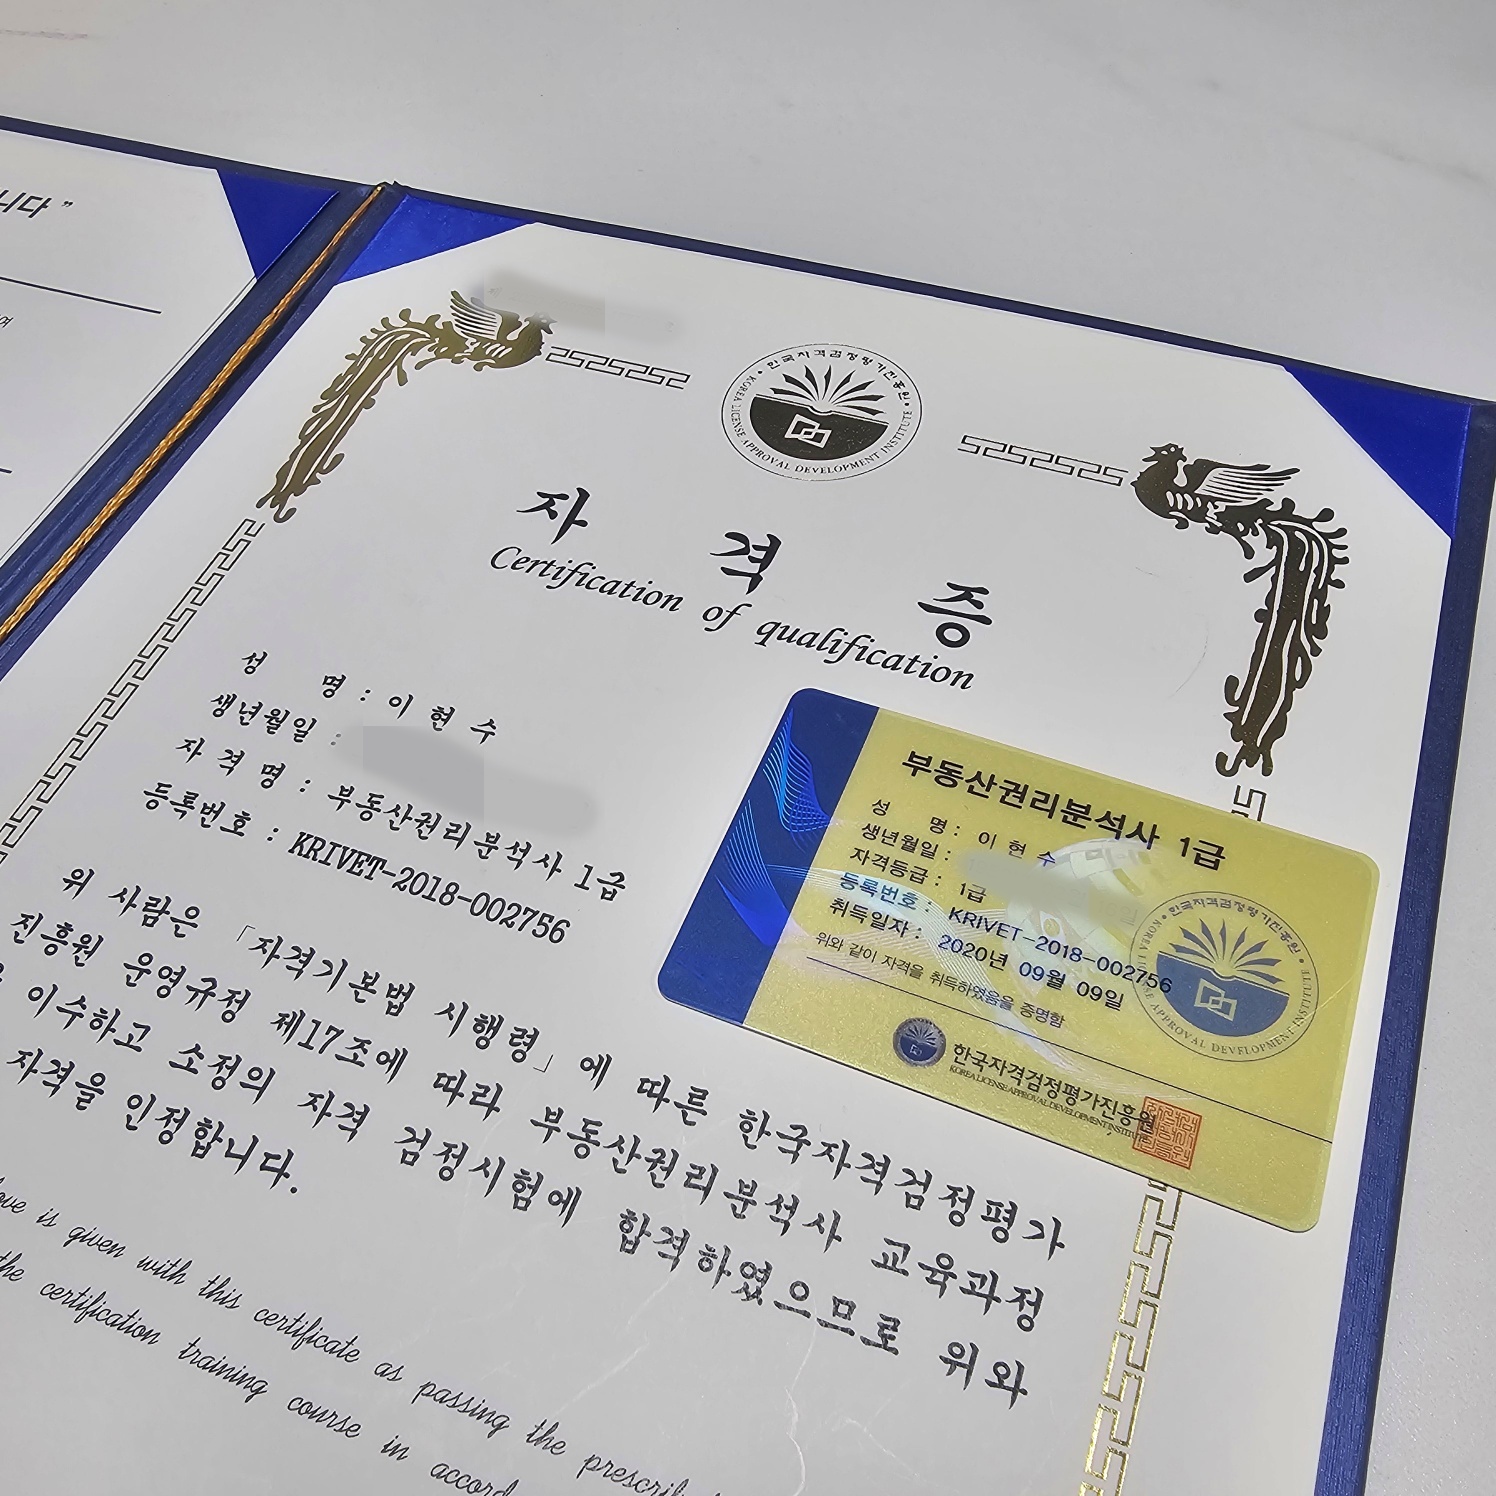 니다 ”
여
한국자격검정평가진흥원
KOREA LICENSE APPROVAL DEVELOPMENT INSTITUTE
자 격 증
Certification of qualification
성 명 : 이 현 수
생년월일 :
자 격 명 : 부동산권리분석사 1급
등록번호 : KRIVET-2018-002756
위 사람은 「자격기본법 시행령」에 따른 한국자격검정평가
진흥원 운영규정 제17조에 따라 부동산권리분석사 교육과정
이수하고 소정의 자격 검정시험에 합격하였으므로 위와
자격을 인정합니다.
is given with this certificate as passing the
the certification training course in
부동산권리분석사 1급
성 명 : 이 현 수
생년월일 :
자격등급 : 1급
등록번호 : KRIVET-2018-002756
취득일자 : 2020년 09월 09일
위와 같이 자격을 취득하였음을 증명함
한국자격검정평가진흥원
KOREA LICENSE APPROVAL DEVELOPMENT INSTITUTE
한국자격검정평가진흥원
KOREA LICENSE APPROVAL DEVELOPMENT INSTITUTE